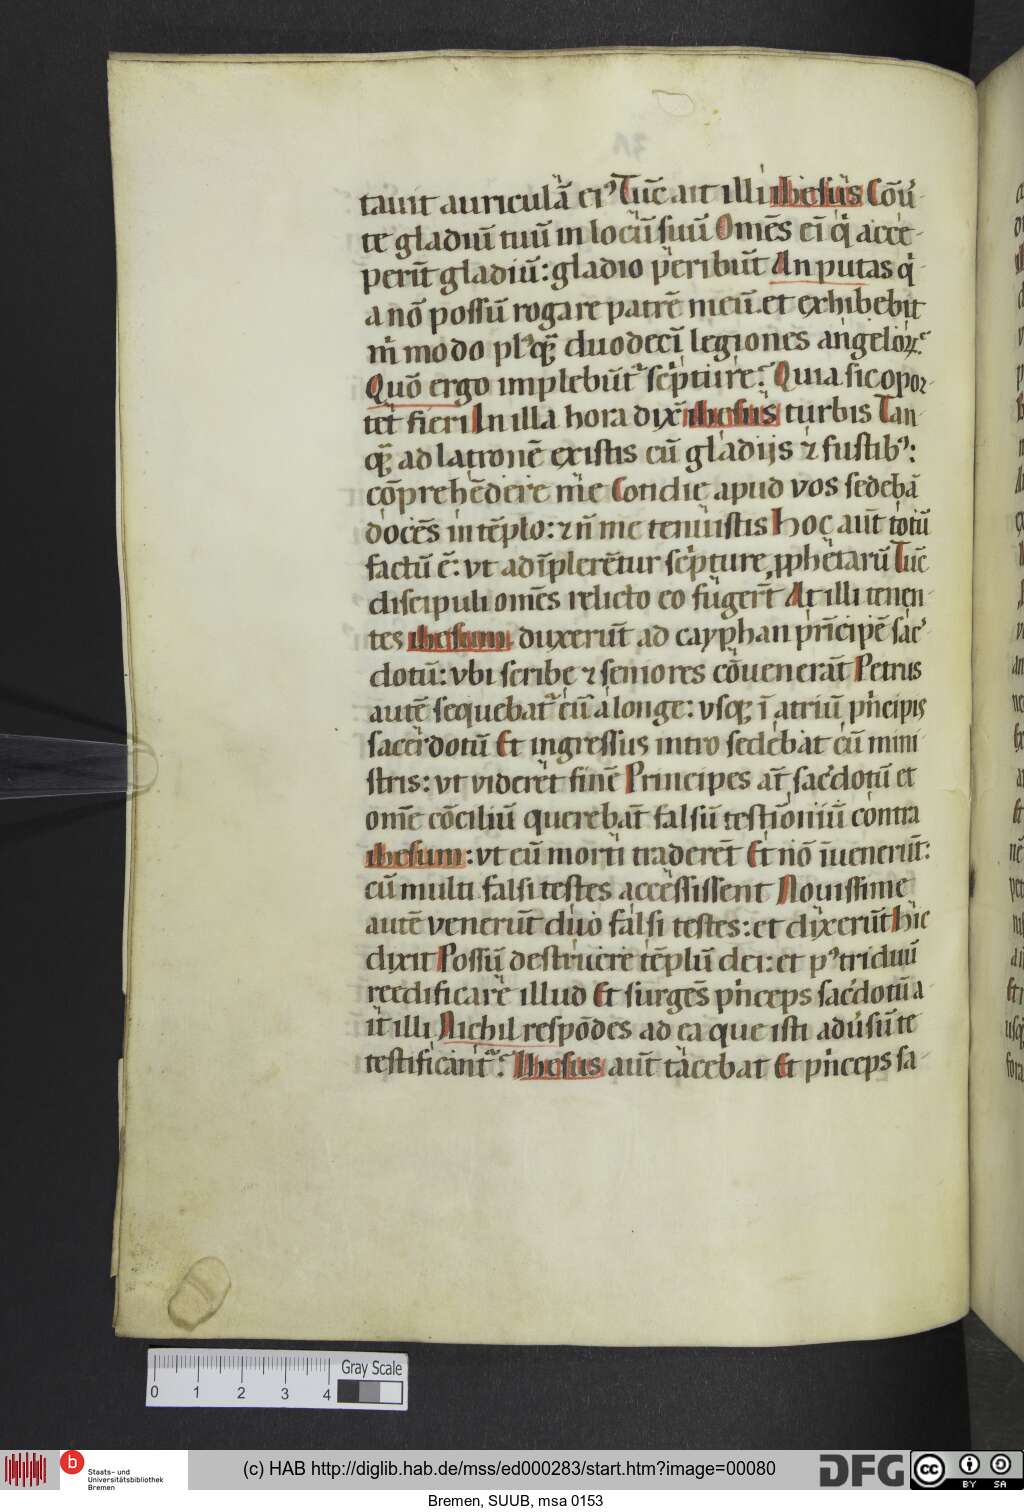 tauit auriculā eiꝰ Tūc ait illi ihesus Cōū
te gladiū tuū in locū suū Omēs eī qͥ acce
perūt gladiū: gladio peribūt An putas qͥ
a nō possū rogare patrē meū. et exhibebit
mͥ modo plꝰqꝫ duodecī legiones angeloꝝ.
Quō ergo implebūt᷑ scͥpture. Quia sic opor
tet fieri In illa hora dixͭ ihesus turbis Tan
qꝫ ad latronē existis cū gladijs ⁊ fustibꝰ:
cōprehēdere me Cotidie apud vos sedebā
docēs in tēplo: ⁊ n̄ me tenuistis Hoc aūt totū
factū ē: vt adīplerētur scͥpture ꝓphetarū Tūc
discipuli omēs relicto eo fūgerͭ At illi tenen
tes ihesum duxerūt ad cayphan prīcipē sac᷑
dotū: vbi scribe ⁊ seniores cōuenerāt Petrus
autē sequebat᷑ eū a longe: vsqꝫ ī atriū pͥncipis
sacerdotū Et ingressus intro sedebat cū mini
stris: vt videret finē Principes aūt sac᷑dotū et
omē cōciliū querebāt falsū testīoniū contra
ihesum: vt eū morti traderēt Et nō īuenerūt:
cū multi falsi testes accessissent Nouissime
autē venerūt duo falsi testes: et dixerūt Hic
dixit Possū destruere tēplū dei: et pꝰ triduū
reedificare illud Et surgēs pͥnceps sac᷑dotū a
it illi Nichil respōdes ad ea que isti adūsū te
testificant᷑. Ihesus aūt tacebat Et pͥnceps sa
0 1 2 3 4
Gray Scale
b
Staats- und
Universitätsbibliothek
Bremen
(c) HAB http://diglib.hab.de/mss/ed000283/start.htm?image=00080
DFG
cc
BY SA
Bremen, SUUB, msa 0153